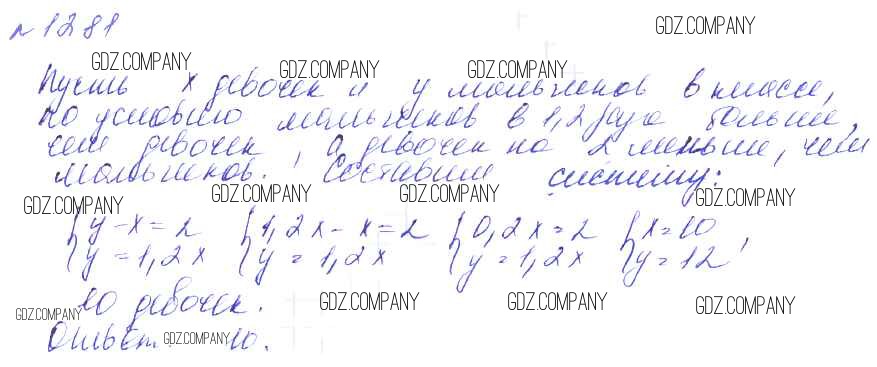 №1281
GDZ.COMPANY
GDZ.COMPANY GDZ.COMPANY GDZ.COMPANY
Пусть x девочек и y мальчиков в классе,
GDZ.COMPANY
по условию мальчиков в 1,2 раза больше,
чем девочек, а девочек на 2 меньше, чем
мальчиков. Составим систему:
GDZ.COMPANY GDZ.COMPANY GDZ.COMPANY GDZ.COMPANY
{y-x=2 {1,2x-x=2 {0,2x=2 {x=10
{y=1,2x {y=1,2x {y=1,2x {y=12,
10 девочек.
GDZ.COMPANY GDZ.COMPANY GDZ.COMPANY GDZ.COMPANY
Ответ: 10.
GDZ.COMPANY